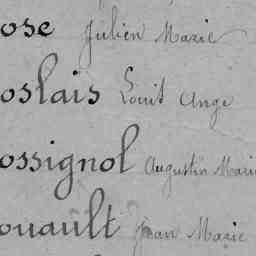 ose Julien Marie
oslais Louis Ange
ossignol Augustin Marie
ouault Jean Marie